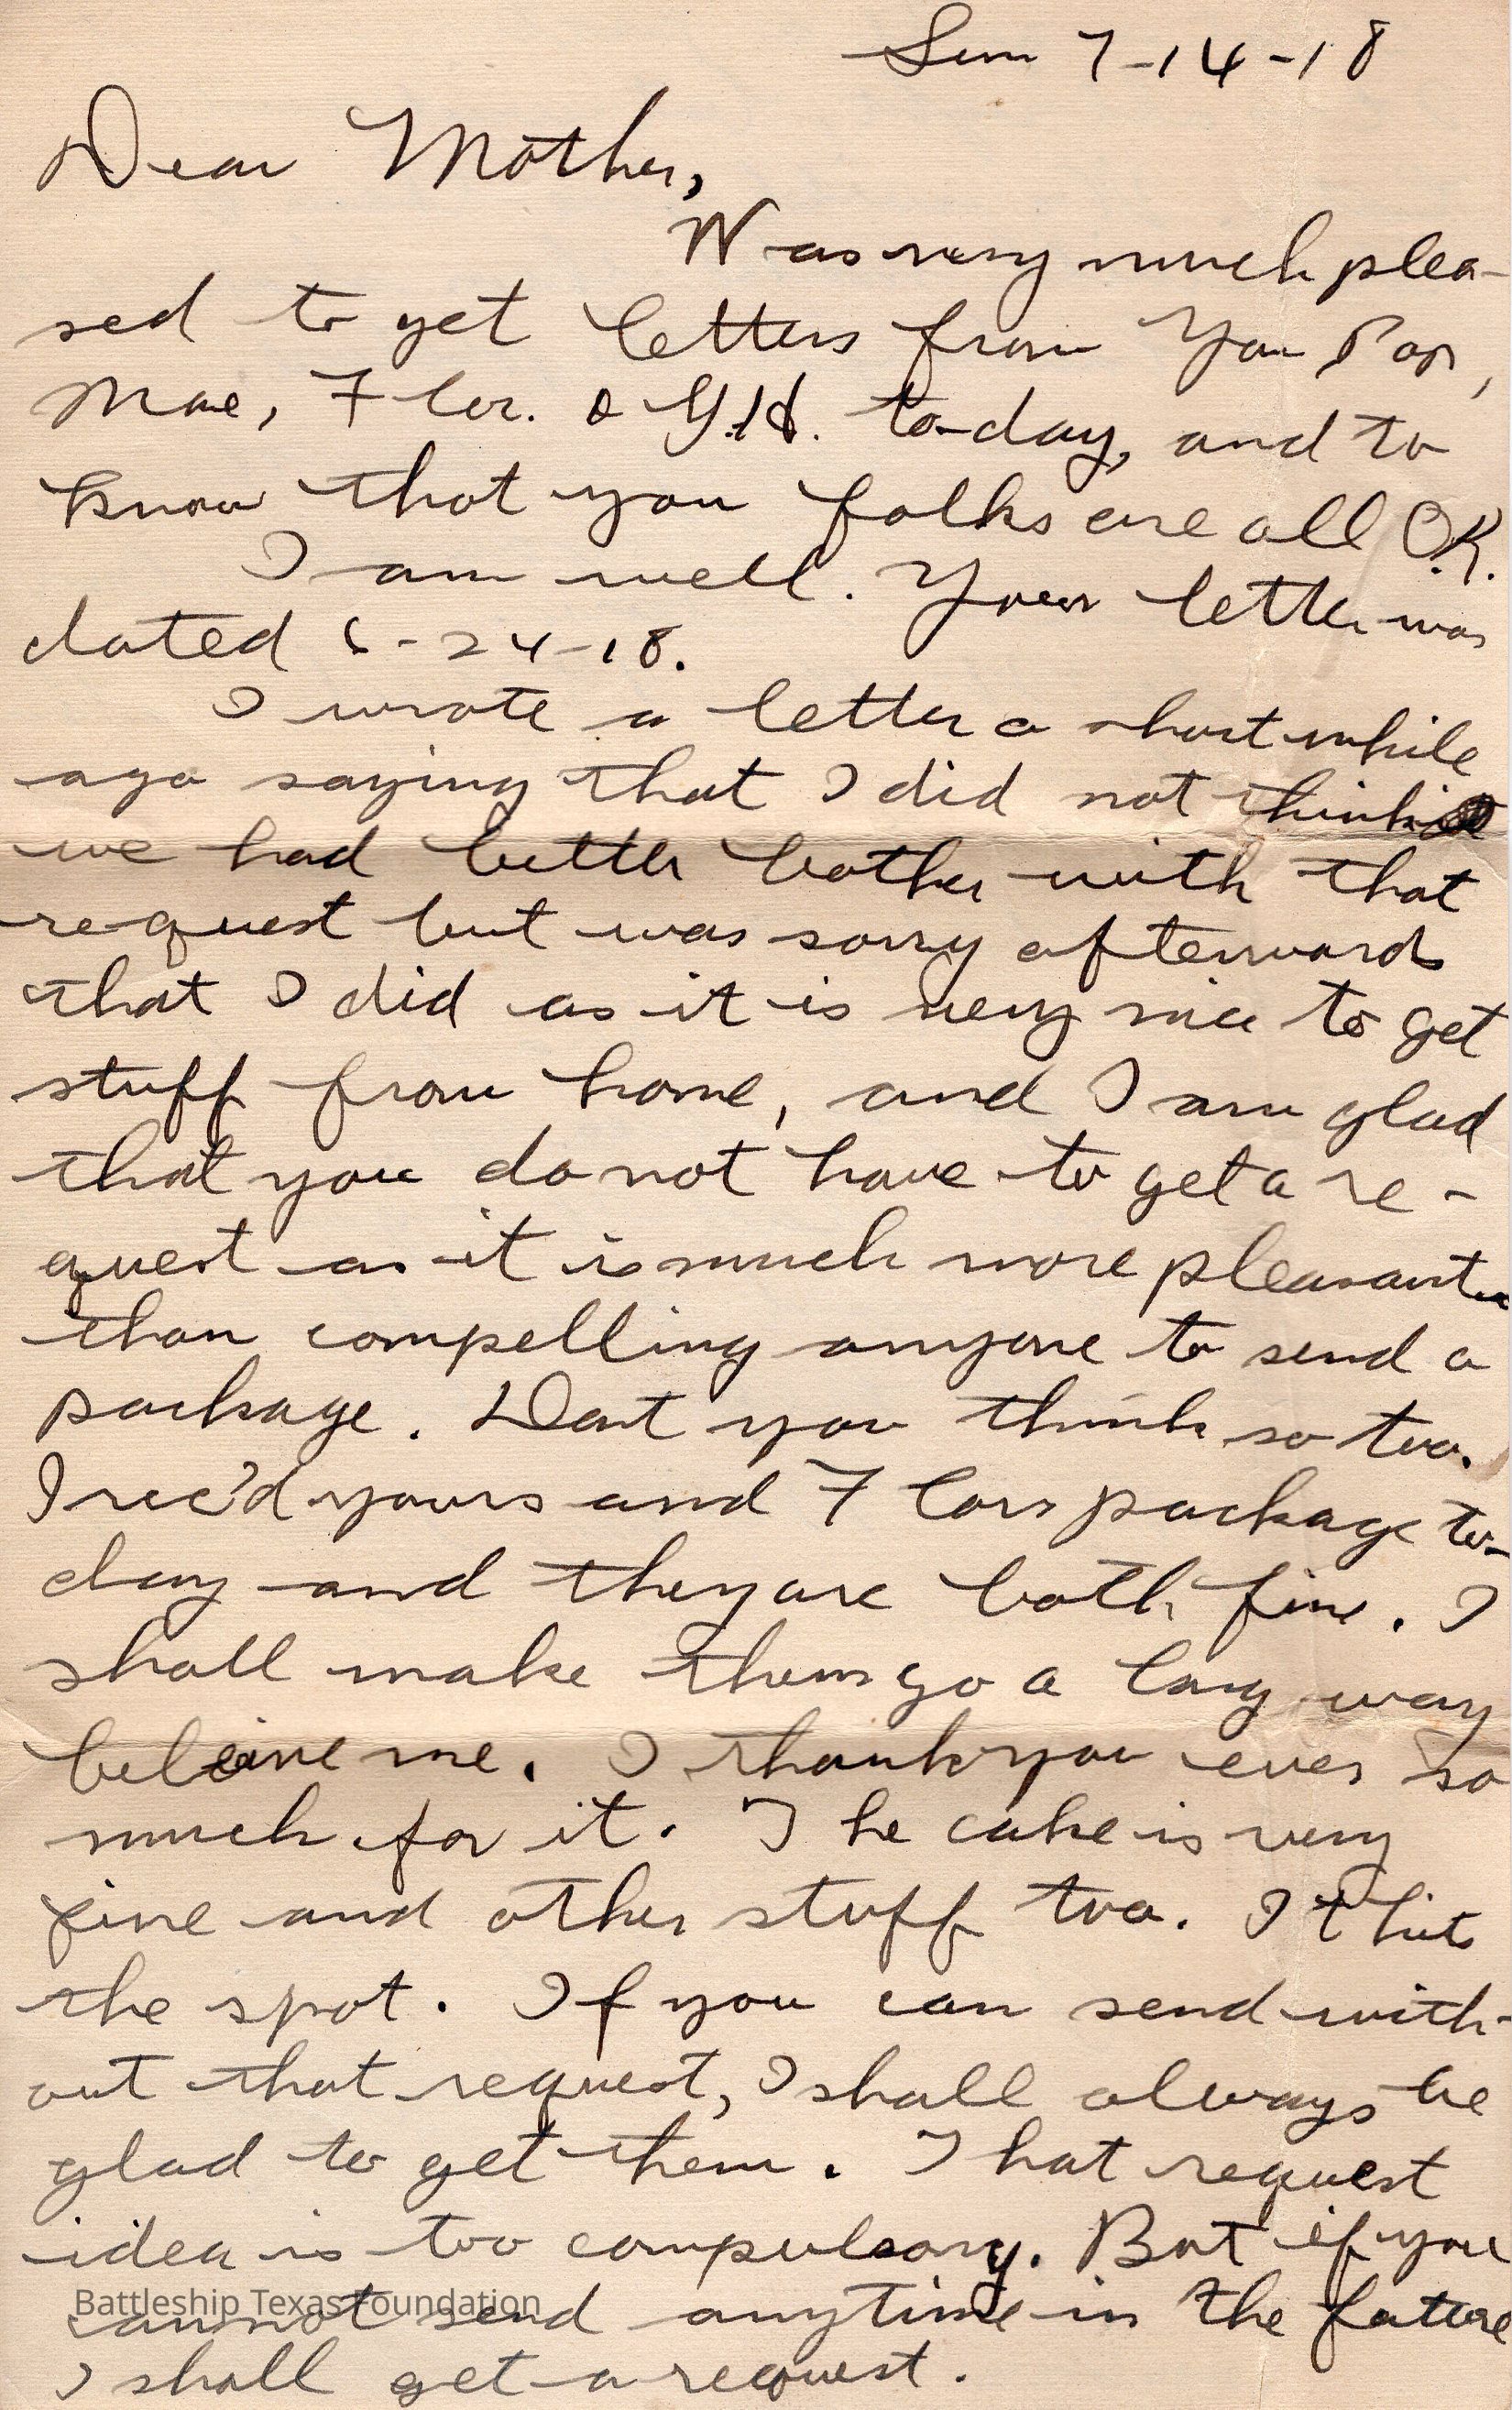 Sun 7-14-18
Dear Mother,
Was very much plea-
sed to get letters from You, Pop,
Mae, Flor. & G.H. to-day, and to
know that you folks are all O.K.
I am well. Your letter was
dated 6-24-18.
I wrote a letter a short while
ago saying that I did not think
we had better bother with that
re-quest but was sorry afterwards
that I did as it is very nice to get
stuff from home, and I am glad
that you do not have to get a re-
quest as it is much more pleasant
than compelling anyone to send a
package. Dont you think so too.
I rec'd yours and Flors package to-
day and they are both fine. I
shall make them go a long way
beleive me. I thank you ever so
much for it. The cake is very
fine and other stuff too. It hits
the spot. If you can send with-
out that request, I shall always be
glad to get them. That request
idea is too compulsory. But if you
cannot send anytime in the future
Battleship Texas Foundation
I shall get a request.